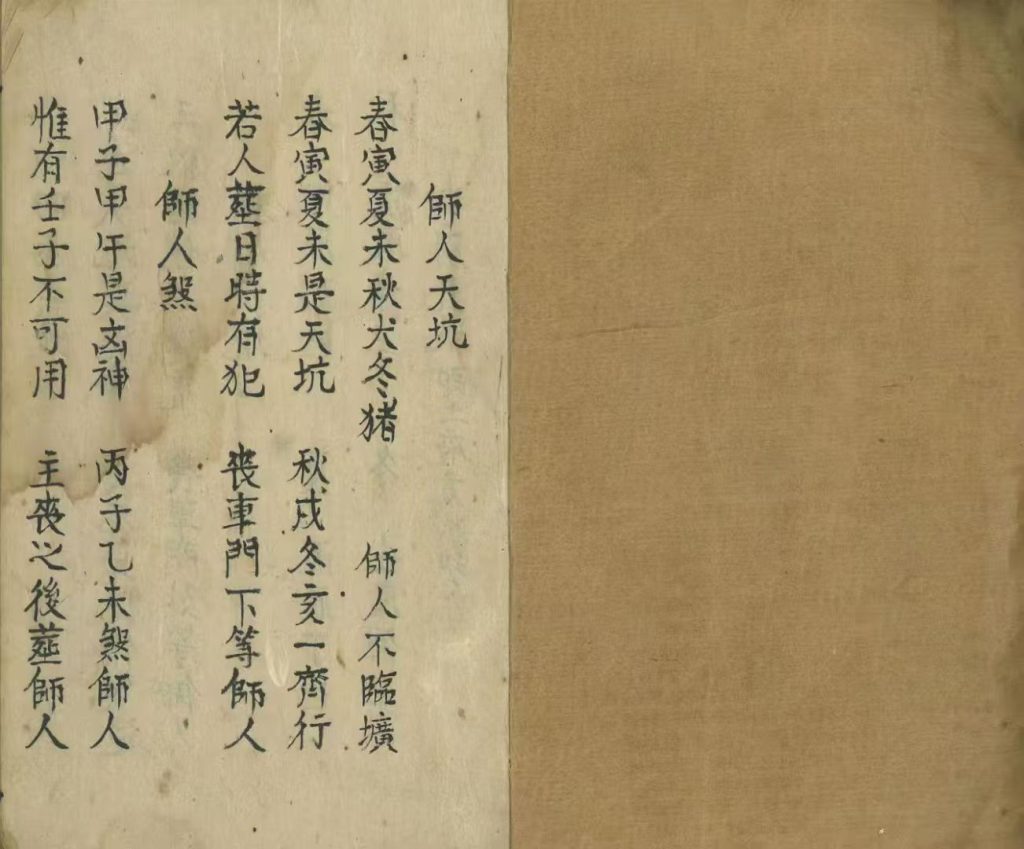 師人天坑
春寅夏未秋犬冬猪　師人不臨壙
春寅夏未是天坑　秋戌冬亥一齊行
若人塟日時有犯　丧車門下等師人
師人煞
甲子甲午是凶神　丙子乙未煞師人
惟有壬子不可用　主丧之後塟師人